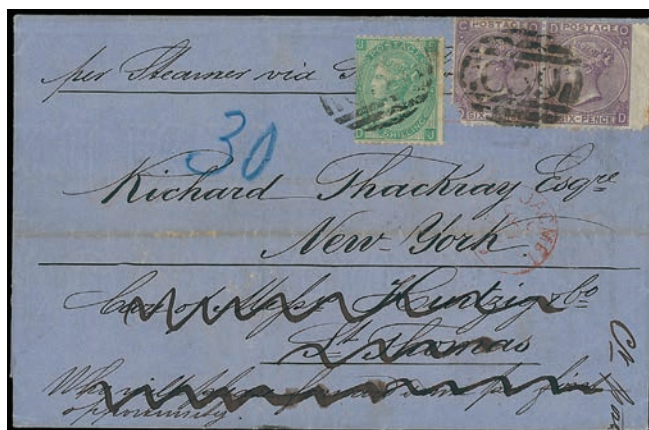 per Steamer via
POSTAGE
ONE SHILLING
POSTAGE
SIX-PENCE
POSTAGE
SIX-PENCE D
30
Richard Thackray Esqre
JACMEL
New-York
Care of Messrs Huntzig & Co
St Thomas
Who will please forward same per first
opportunity.